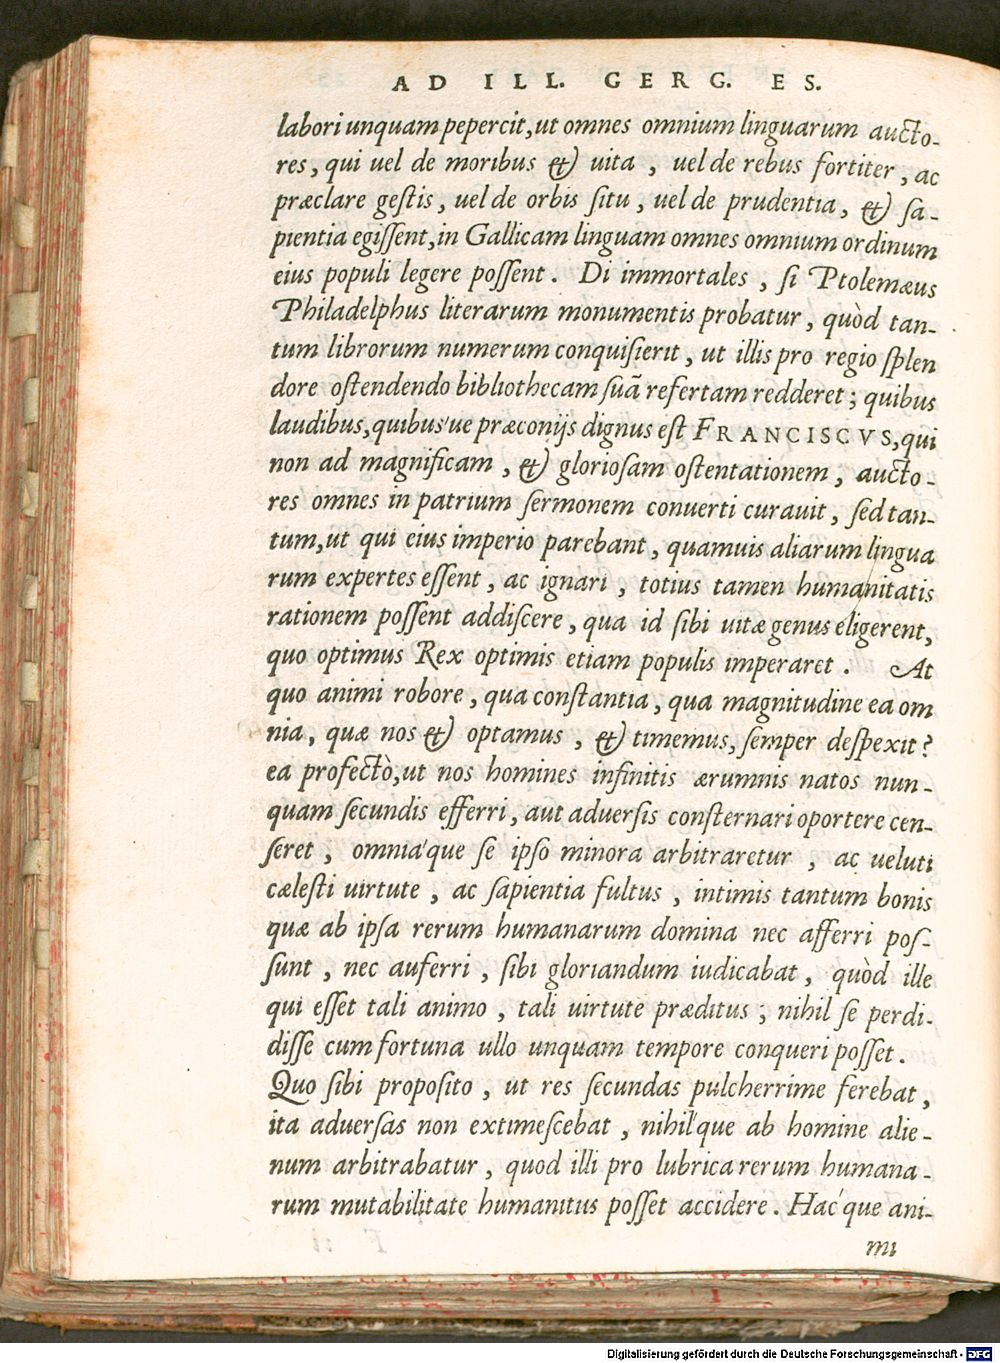 AD ILL. GERG. ES.
labori unquam pepercit, ut omnes omnium linguarum aucto-
res, qui uel de moribus & uita, uel de rebus fortiter, ac
præclare gestis, uel de orbis situ, uel de prudentia, & sa-
pientia egissent, in Gallicam linguam omnes omnium ordinum
eius populi legere possent. Di immortales, si Ptolemæus
Philadelphus literarum monumentis probatur, quòd tan-
tum librorum numerum conquisierit, ut illis pro regio splen
dore ostendendo bibliothecam suã refertam redderet; quibus
laudibus, quibus'ue præconijs dignus est FRANCISCVS, qui
non ad magnificam, & gloriosam ostentationem, aucto-
res omnes in patrium sermonem conuerti curauit, sed tan-
tum, ut qui eius imperio parebant, quamuis aliarum lingua
rum expertes essent, ac ignari, totius tamen humanitatis
rationem possent addiscere, qua id sibi uitæ genus eligerent,
quo optimus Rex optimis etiam populis imperaret. At
quo animi robore, qua constantia, qua magnitudine ea om
nia, quæ nos & optamus, & timemus, semper despexit?
ea profectò, ut nos homines infinitis ærumnis natos nun-
quam secundis efferri, aut aduersis consternari oportere cen-
seret, omnia'que se ipso minora arbitraretur, ac ueluti
cælesti uirtute, ac sapientia fultus, intimis tantum bonis
quæ ab ipsa rerum humanarum domina nec afferri pos-
sunt, nec auferri, sibi gloriandum iudicabat, quòd ille
qui esset tali animo, tali uirtute præditus; nihil se perdi-
disse cum fortuna ullo unquam tempore conqueri posset.
Quo sibi proposito, ut res secundas pulcherrime ferebat,
ita aduersas non extimescebat, nihil'que ab homine alie-
num arbitrabatur, quod illi pro lubrica rerum humana-
rum mutabilitate humanitus posset accidere. Hac'que ani-
mi
Digitalisierung gefördert durch die Deutsche Forschungsgemeinschaft - DFG